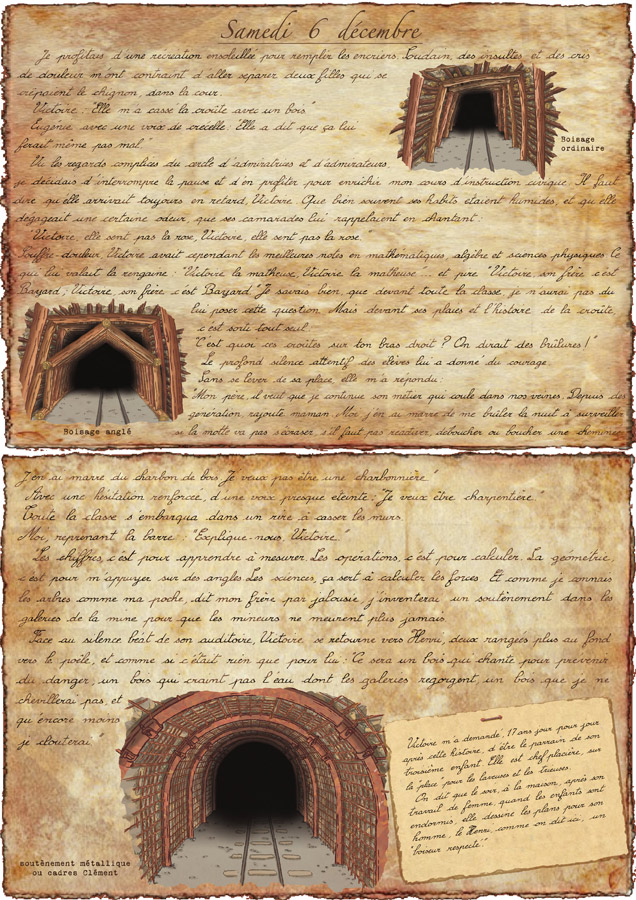 Samedi 6 décembre
Je profitais d'une récréation ensoleillée pour remplir les encriers. Soudain, des insultes et des cris
de douleur m'ont contraint d'aller séparer deux filles qui se
crêpaient le chignon, dans la cour.
Victoire : "Elle m'a cassé la croûte avec un bois"
Eugénie avec une voix de crécelle : "Elle a dit que ça lui
ferait même pas mal."
Boisage
ordinaire
Vu les regards complices du cercle d'admiratrices et d'admirateurs,
je décidais d'interrompre la pause et d'en profiter pour enrichir mon cours d'instruction civique. Il faut
dire qu'elle arrivait toujours en retard, Victoire. Que bien souvent ses habits étaient humides, et qu'elle
dégageait une certaine odeur, que ses camarades lui rappelaient en chantant :
"Victoire, elle sent pas la rose, Victoire, elle sent pas la rose.
Souffre-douleur, Victoire avait cependant les meilleures notes en mathématiques, algèbre et sciences physiques. Ce
qui lui valait la rengaine : "Victoire la matheuse, Victoire, la matheuse"... et pire "Victoire, son frère c'est
Bayard ; Victoire, son frère, c'est Bayard." Je savais bien, que devant toute la classe, je n'aurai pas du
lui poser cette question. Mais devant ses plaies et l'histoire de la croûte,
c'est sorti tout seul :
"C'est quoi ces croûtes sur ton bras droit ? On dirait des brûlures !"
Le profond silence attentif des élèves lui a donné du courage.
Sans se lever de sa place, elle m'a répondu :
"Mon père, il veut que je continue son métier qui coule dans nos veines. Depuis des
génération rajoute maman. Moi, j'en ai marre de me brûler la nuit à surveiller
si la motte va pas s'écraser, s'il faut pas réactiver, déboucher ou boucher une cheminée.
Boisage anglé
J'en ai marre du charbon de bois. Je veux pas être une charbonnière."
Avec une hésitation renforcée, d'une voix presque éteinte : "Je veux être charpentière."
Toute la classe s'embarqua dans un rire à casser les murs.
Moi, reprenant la barre : "Explique-nous, Victoire..
"Les chiffres, c'est pour apprendre à mesurer. Les opérations, c'est pour calculer. La géométrie,
c'est pour m'appuyer sur des angles. Les sciences, ça sert à calculer les forces. Et comme je connais
les arbres comme ma poche, dit mon frère par jalousie, j'inventerai un soutènement dans les
galeries de la mine pour que les mineurs ne meurent plus jamais.
Face au silence béat de son auditoire, Victoire se retourne vers Henri, deux rangées plus au fond
vers le poêle, et comme si c'était rien que pour lui : "Ce sera un bois qui chante pour prévenir
du danger, un bois qui craint pas l'eau dont les galeries regorgent, un bois que je ne
chevillerai pas, et
qu'encore moins
je clouterai.
soutènement métallique
ou cadres Clément
Victoire m'a demandé, 17 ans jour pour jour
après cette histoire, d'être la parrain de son
troisième enfant. Elle est chef placière, sur
la place pour les laveuses et les trieuses.
On dit que le soir, à la maison, après son
travail de femme, quand les enfants sont
endormis, elle dessine les plans pour son
homme, le Henri, comme on dit ici, un
"boiseur respecté".